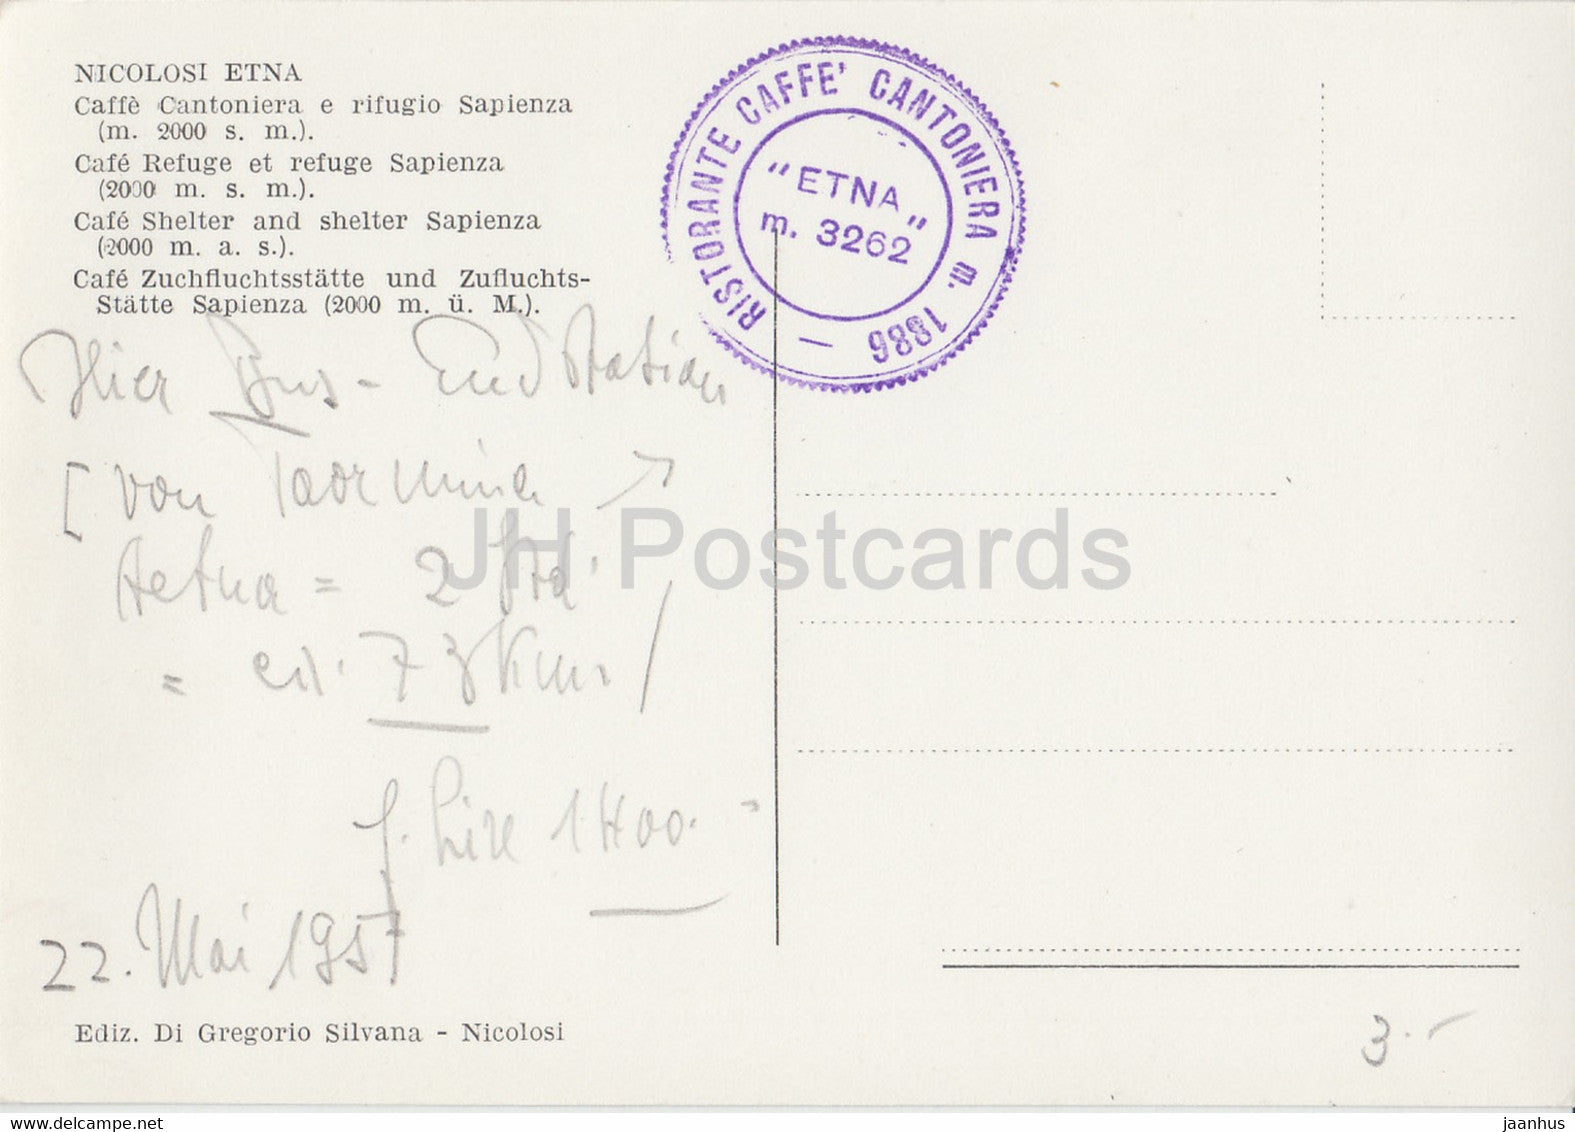 NICOLOSI ETNA
Caffè Cantoniera e rifugio Sapienza
(m. 2000 s. m.).
Café Refuge et refuge Sapienza
(2000 m. s. m.).
Café Shelter and shelter Sapienza
(2000 m. a. s.).
Café Zuchfluchtsstätte und Zufluchts-
Stätte Sapienza (2000 m. ü. M.).
RISTORANTE CAFFE' CANTONIERA m. 1886 —
"ETNA"
m. 3262
Hier Bus - Endstation
[von Taormina →
Aetna = 2 Std.
= ca. 73 Km.
f. Lire 1400.-
22. Mai 1957
Ediz. Di Gregorio Silvana - Nicolosi
3.-
JH Postcards
www.delcampe.net
jaanhus